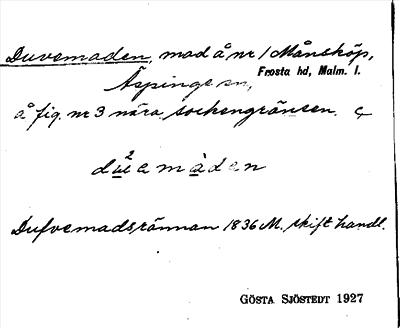 Duvemaden, mad å nr 1 Månsköp,
Frosta hd, Malm. l.
Äspinge sn,
å fig. nr 3 nära sockengränsen.
Dufvemadsrännan 1836 M. skift handl.
GÖSTA SJÖSTEDT 1927